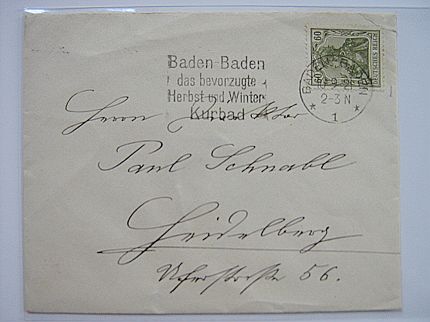 Baden-Baden
das bevorzugte
Herbst und Winter
Kurbad
60 60
DEUTSCHES REICH
BADEN-BADEN
2-3 N
* 1 *
Herrn
Paul Schnabl
Heidelberg
Uferstraße 56.